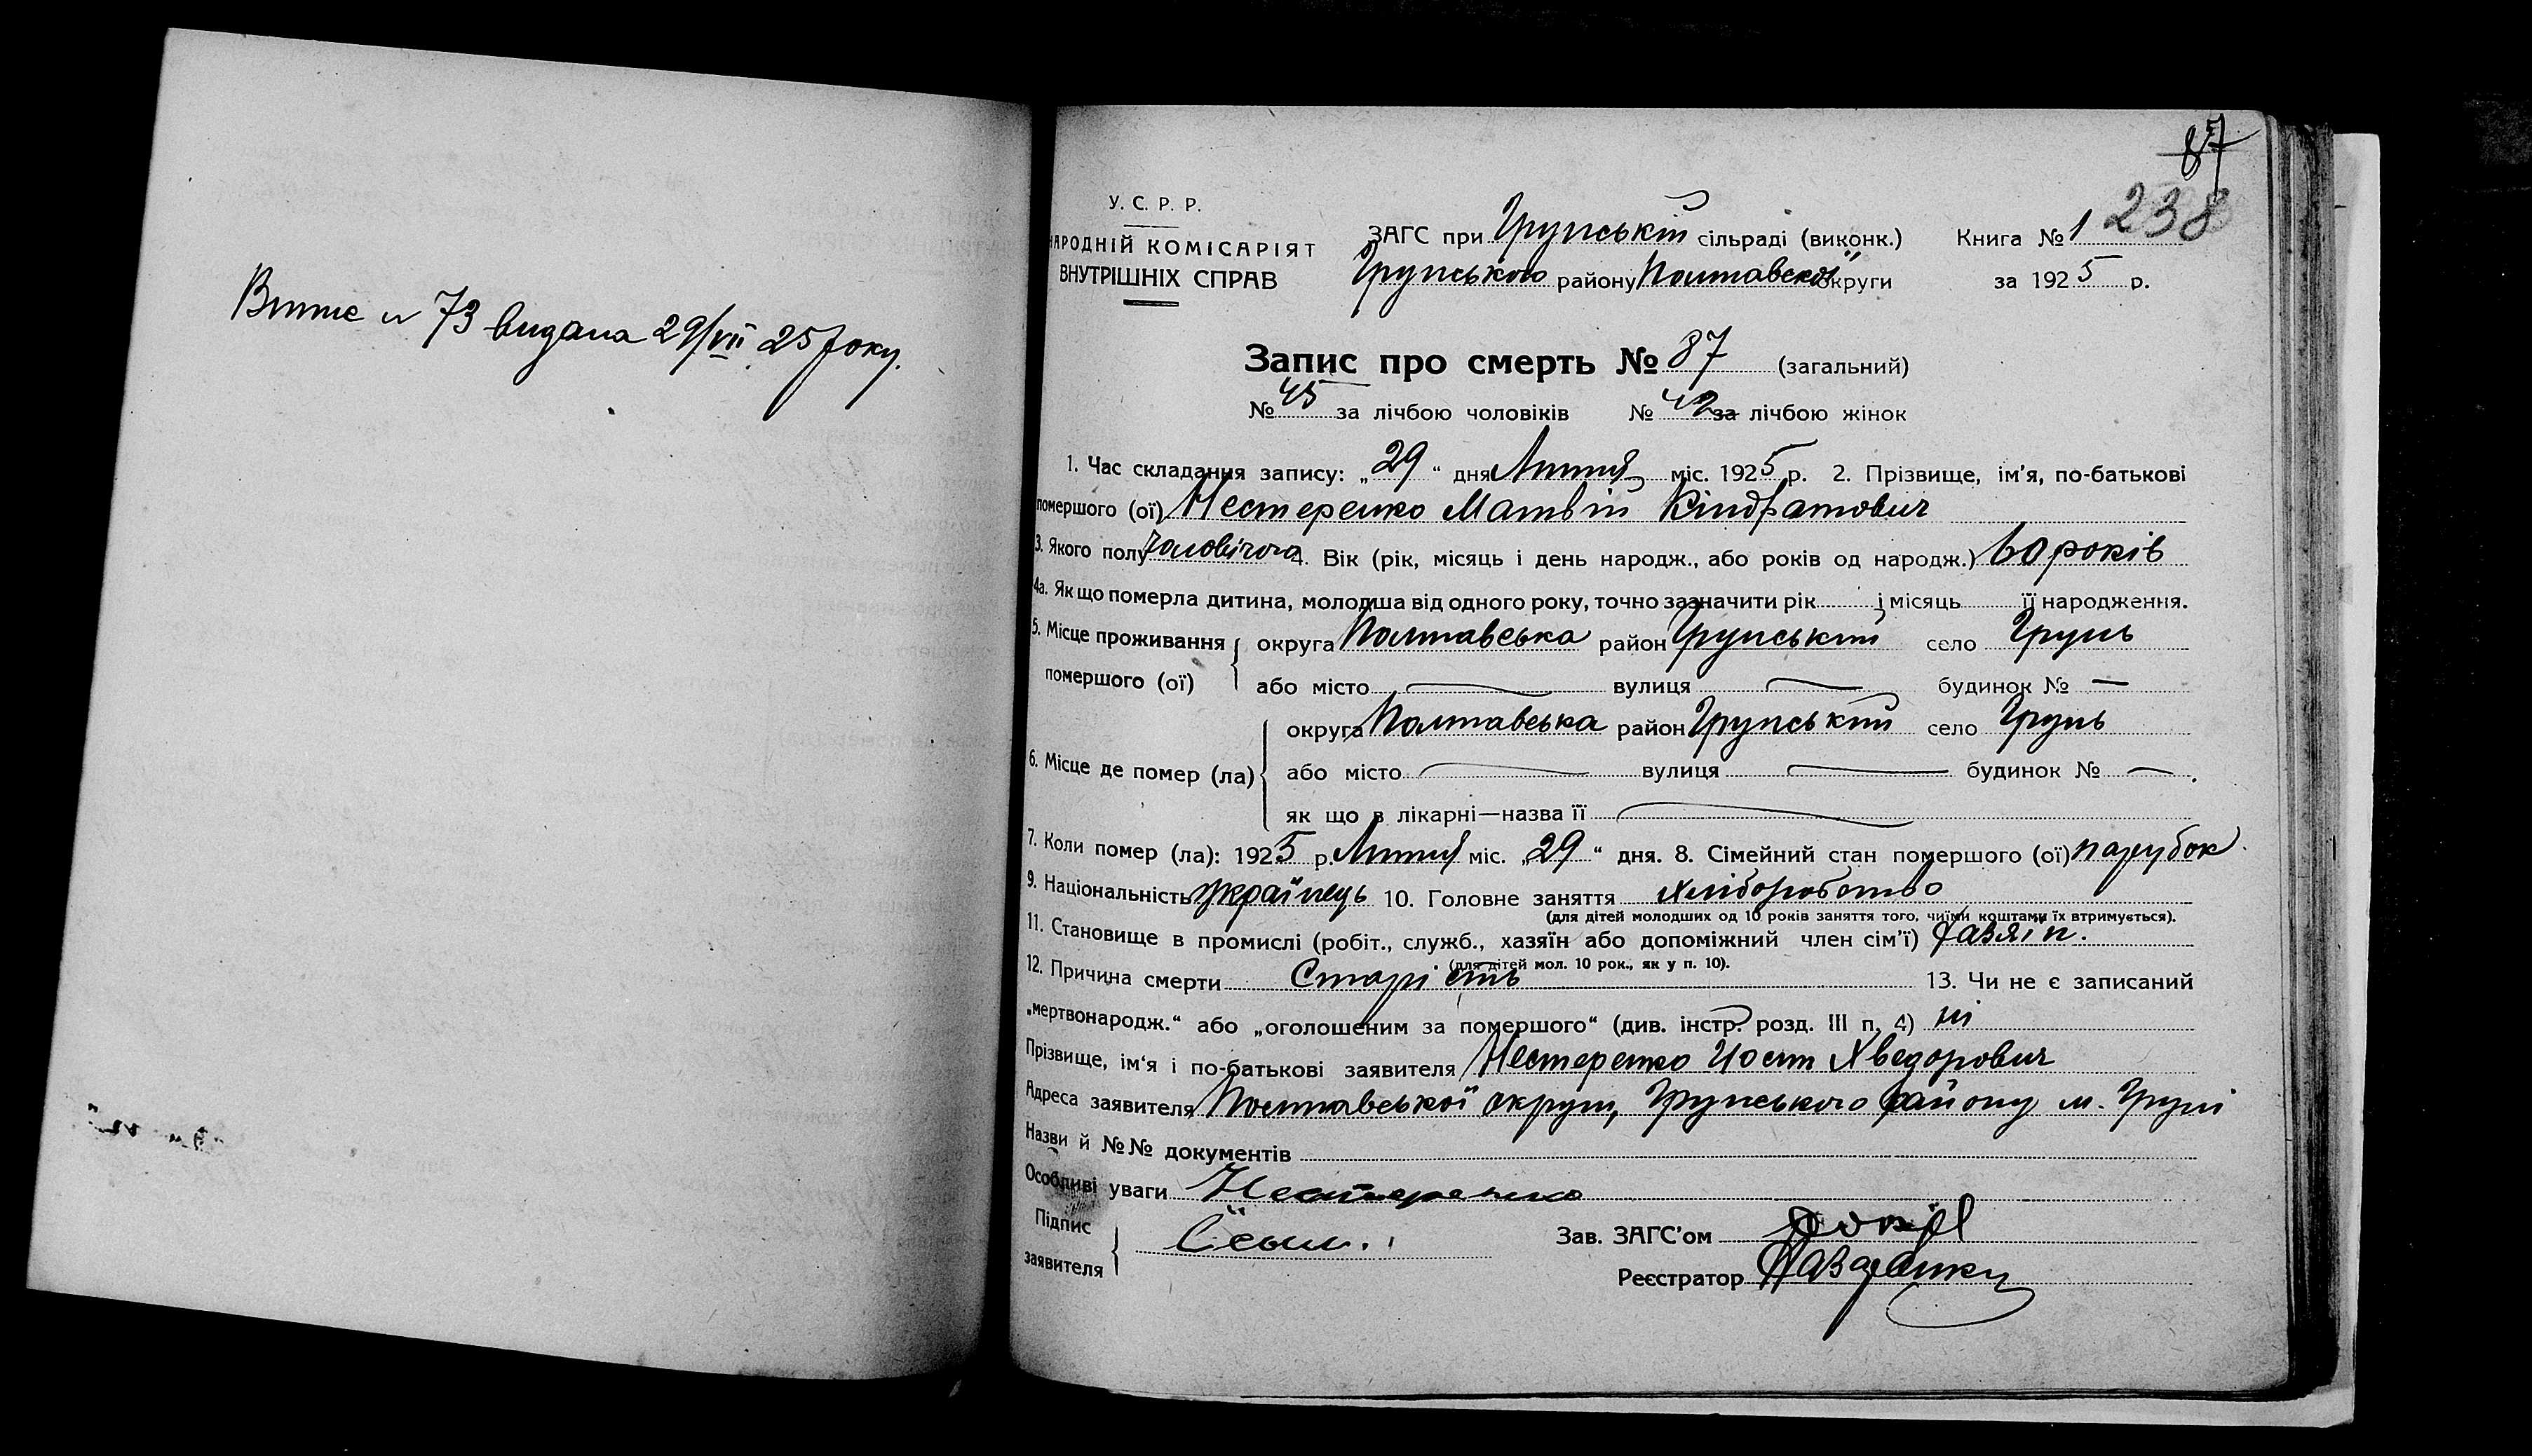 Випис № 73 видана 29/VII 25 року.
87
238
У. С. Р. Р.
НАРОДНІЙ КОМІСАРІЯТ
ВНУТРІШНІХ СПРАВ
ЗАГС при Грунській сільраді (виконк.)
Грунського району Полтавської округи
Книга № 1
за 1925 р.
Запис про смерть № 87 (загальний)
№ 45 за лічбою чоловіків № 42 за лічбою жінок
1. Час складання запису: „29“ дня Липня міс. 1925 р. 2. Прізвище, ім'я, по-батькові
помершого (ої) Нестеренко Матвій Кіндратович
3. Якого полу Чоловічого 4. Вік (рік, місяць і день народж., або років од народж.) 60 років
4а. Як що померла дитина, молодша від одного року, точно зазначити рік і місяць її народження.
5. Місце проживання помершого (ої) округа Полтавська район Грунський село Грунь
або місто — вулиця — будинок № —
6. Місце де помер (ла) округа Полтавська район Грунський село Грунь
або місто — вулиця — будинок № —
як що в лікарні—назва її —
7. Коли помер (ла): 1925 р. Липня міс. „29“ дня. 8. Сімейний стан помершого (ої) парубок
9. Національність українець 10. Головне заняття хліборобство
(для дітей молодших од 10 років заняття того, чиїми коштами їх втримується).
11. Становище в промислі (робіт., служб., хазяїн або допоміжний член сім'ї) хазяін.
(для дітей мол. 10 рок., як у п. 10).
12. Причина смерти Старість 13. Чи не є записаний
„мертвонародж.“ або „оголошеним за помершого“ (див. інстр. розд. III п. 4) ні
Прізвище, ім'я і по-батькові заявителя Нестеренко Йосип Хведорович
Адреса заявителя Полтавської округи, Грунського району м. Груні
Назви й №№ документів
Особливі уваги Нестеренко
Підпис заявителя
Зав. ЗАГС'ом
Реєстратор